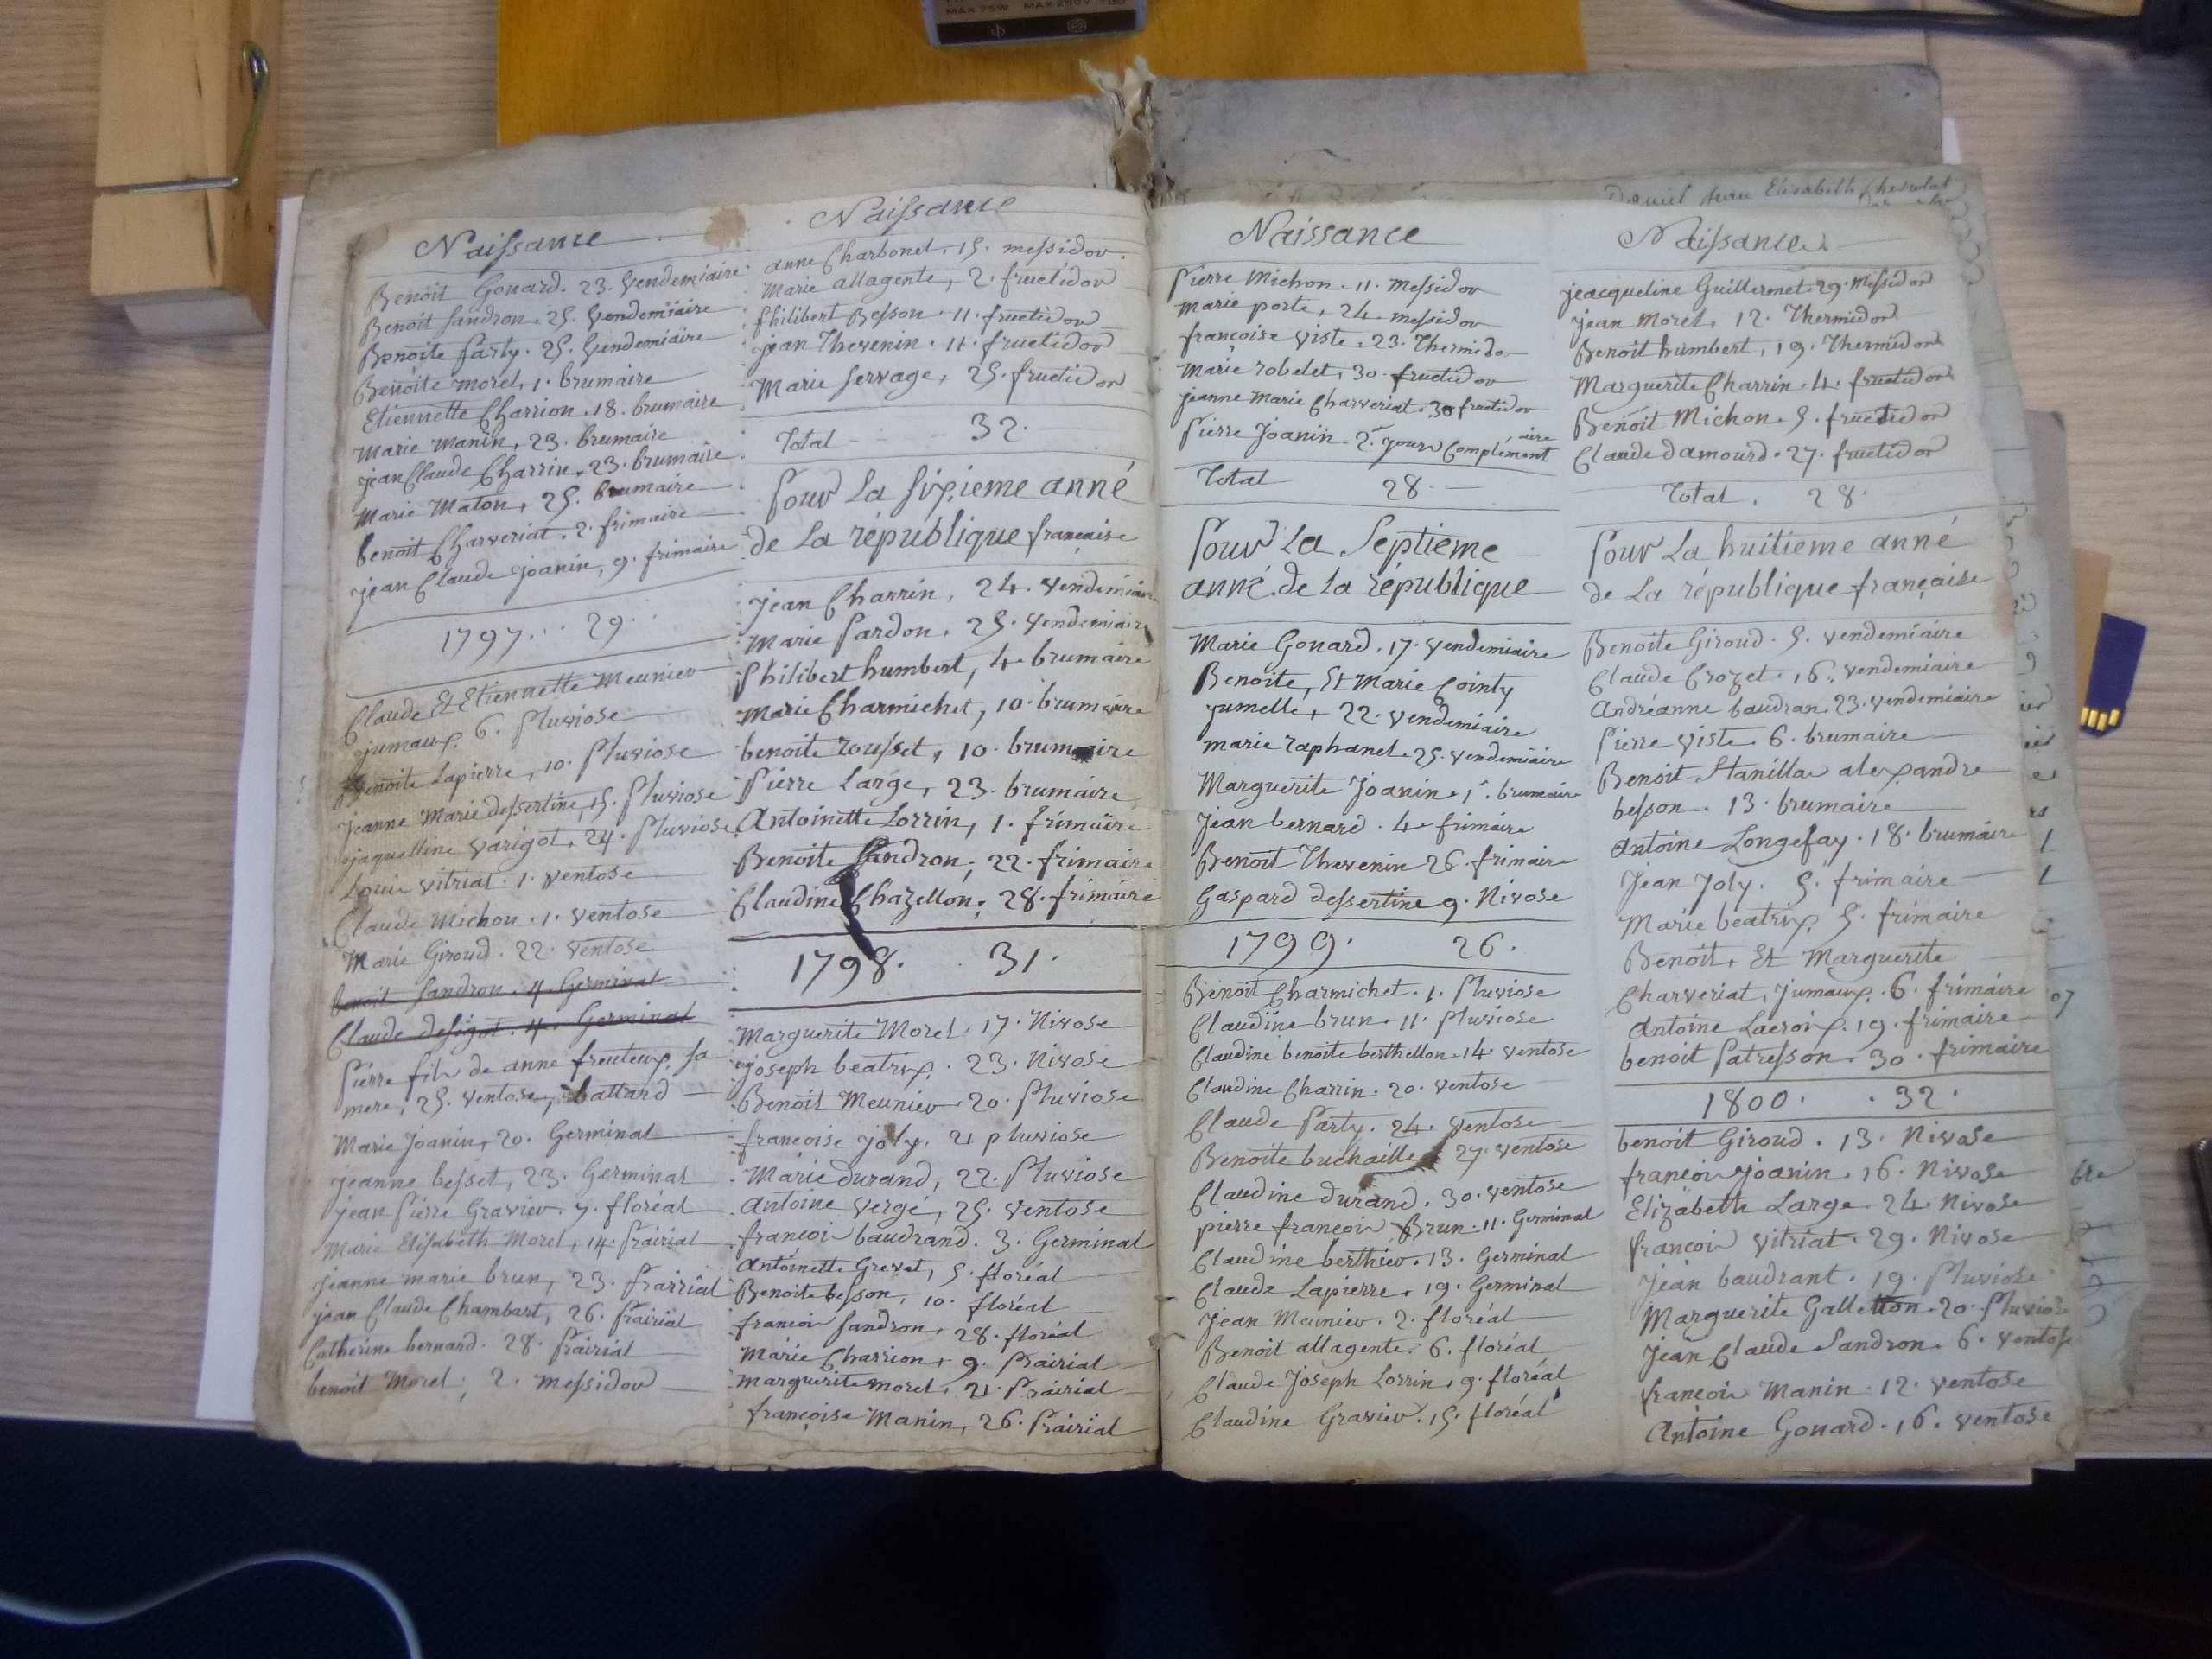 MAX 75W MAX 250V
Naissance
Benoit Gonard. 23. Vendemiaire
Benoit Sandron. 25. Vendemiaire
Benoite Party. 25. Vendemiaire
Benoite morel, 1. brumaire
Etiennette Charrion. 18. brumaire
Marie Manin, 23. brumaire
jean Claude Charrin. 23. brumaire
Marie Maton, 25. brumaire
benoit Charveriat. 2. frimaire
jean Claude joanin, 9. frimaire
1797... 29.
Claude Et Etiennette Meunier
jumaux. 6. Pluviose
Benoite Lapierre, 10. Pluviose
jeanne Marie dessertine, 15. Pluviose
jaquelline varigot. 24. Pluviose
Louis vitriat. 1. ventose
Claude Michon. 1. ventose
Marie Giroud. 22. ventose
benoit Sandron. 4. Germinal
Claude desigot. 4. Germinal
Pierre fils de anne freuteux, sa
mere, 25. ventose, battard
Marie joanin, 20. Germinal
jeanne besset, 23. Germinal
jean Pierre Gravier. 7. floréal
Marie Elisabeth Morel, 14. Prairial
jeanne marie brun, 23. Prairial
jean Claude Chambart, 26. Prairial
Catherine bernard. 28. Prairial
benoit Morel, 2. messidor
Naissance
anne Charbonet, 15. messidor.
Marie allagente, 2. fructidor
Philibert Besson. 11. fructidor
jean Thevenin. 11. fructidor
Marie Servage, 25. fructidor
Total 32.
Pour La Sixieme anné
de La république française
jean Charrin, 24. vendemiaire
Marie Pardon. 25. vendemiaire
Philibert humbert, 4. brumaire
Marie Charmichet, 10. brumaire
benoite rousset, 10. brumaire
Pierre Large, 23. brumaire
Antoinette Lorrin, 1. frimaire
Benoite Sandron, 22. frimaire
Claudine Chazellon, 28. frimaire
1798. 31.
Marguerite Morel. 17. Nivose
joseph beatrix. 23. Nivose
Benoit Meunier. 20. Pluviose
francoise joly. 21 pluviose
Marie durand, 22. Pluviose
Antoine vergé, 25. ventose
francois baudrand. 3. Germinal
Antoinette Grevet, 5. floréal
Benoite besson, 10. floréal
francois Sandron, 28. floréal
Marie Charrion, 9. Prairial
marguerite morel, 21. Prairial
françoise Manin, 26. Prairial
Naissance
Pierre Michon. 11. Messidor
Marie porte, 24. messidor
francoise viste. 23. Thermidor
Marie robelet, 30. fructidor
jeanne Marie Charveriat. 30 fructidor
Pierre Joanin. 2e. jour Complémentaire
Total 28.
Pour La Septieme
anné de la république
Marie Gonard. 17. Vendemiaire
Benoite, Et Marie Cointy
jumelle, 22. vendemiaire
marie raphanel. 25. vendemiaire
Marguerite Joanin. 1er. brumaire
Jean bernard. 4. frimaire
Benoit Thevenin 26. frimaire
Gaspard dessertine 9. Nivose
1799. 26.
Benoit Charmichet. 1. Pluviose
Claudine brun. 11. Pluviose
Claudine benoite berthellon. 14. ventose
Claudine Charrin. 20. ventose
Claude Party. 24. ventose
Benoite buchaille 27. ventose
Claudine durand. 30. ventose
pierre francois Brun. 11. Germinal
Claudine berthier. 13. Germinal
Claude Lapierre, 19. Germinal
Jean Meunier. 2. floréal
Benoit allagente. 6. floréal
Claude Joseph Lorrin, 9. floréal
Claudine Gravier. 15. floréal
Elisabeth Chevolat
Naissance
jeacqueline Guillermet. 29. Messidor
jean Morel, 12. Thermidor
Benoit humbert, 19. Thermidor
Marguerite Charrin. 4. fructidor
Benoit Michon. 5. fructidor
Claude damourd. 27. fructidor
Total. 28.
Pour La huitieme anné
de La république française
Benoite Giroud. 5. vendemiaire
Claude Crozet. 16. vendemiaire
Andréanne baudran. 23. vendemiaire
Pierre viste. 6. brumaire
Benoit Stanillas alexandre
besson. 13. brumaire
Antoine Longefay. 18. brumaire
Jean Joly. 5. frimaire
Marie beatrix. 5. frimaire
Benoit, Et Marguerite
Charveriat, Jumaux. 6. frimaire
Antoine Lacroix. 19. frimaire
benoit Patresson. 30. frimaire
1800. 32.
benoit Giroud. 13. Nivose
francois joanin. 16. Nivose
Elizabette Large. 24. Nivose
francois vitriat. 29. Nivose
Jean baudrant. 19. Pluviose
Marguerite Galletton. 20. Pluviose
Jean Claude Sandron. 6. ventose
francois Manin. 12. ventose
Antoine Gonard. 16. ventose